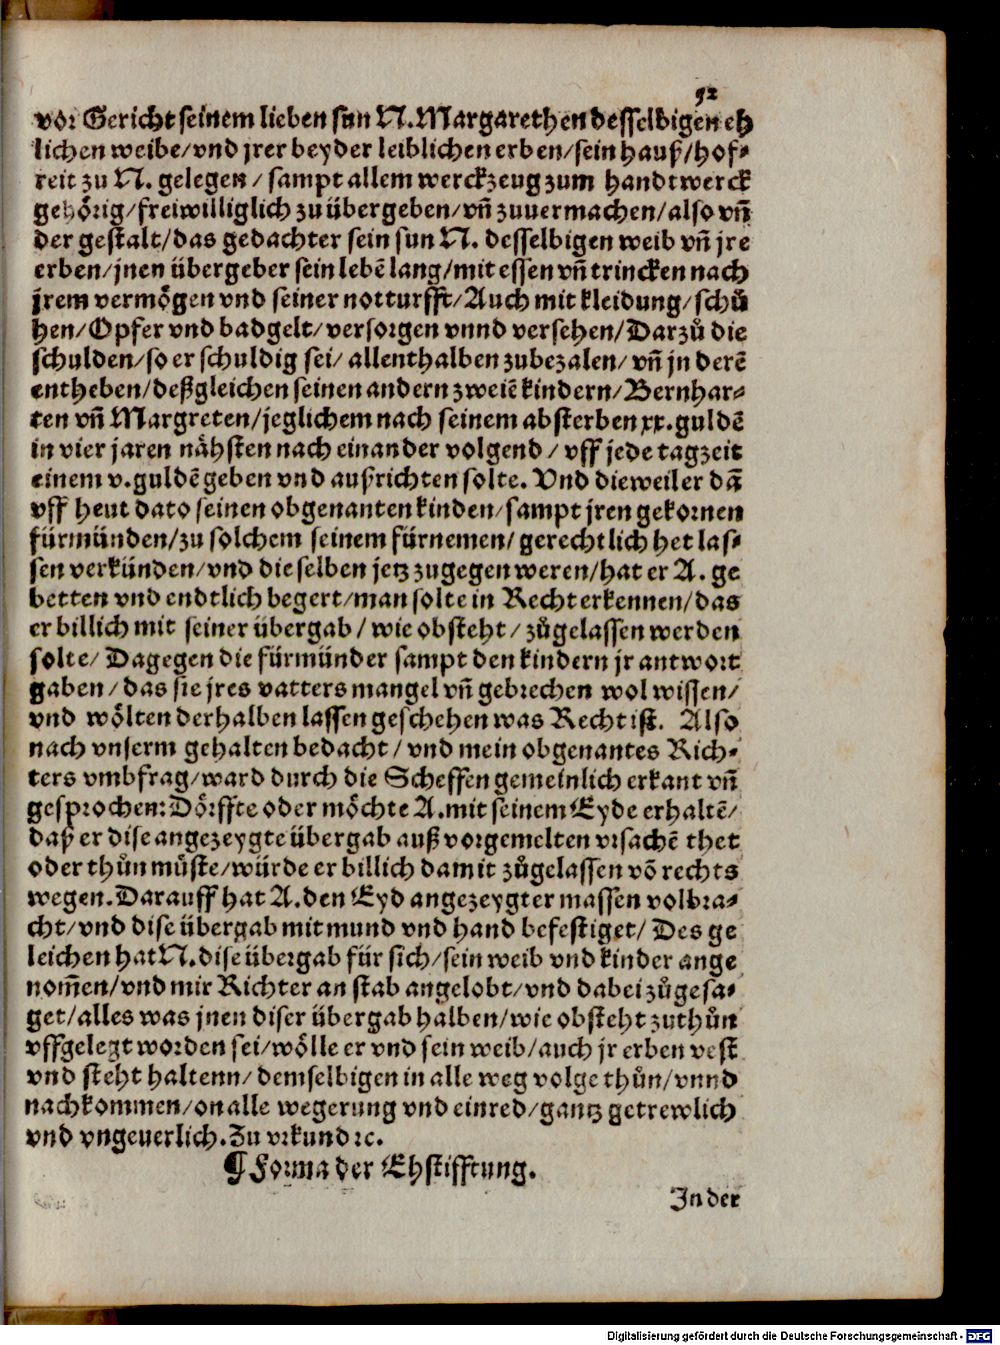 52
vor Gericht seinem lieben sun N. Margarethen desselbigen eh
lichen weibe/vnd jrer beyder leiblichen erben/sein hauß/hof⸗
reit zu N. gelegen/sampt allem werckzeug zum handtwerck
gehörig/freiwilliglich zu übergeben/vñ zuuermachen/also vñ
der gestalt/das gedachter sein sun N. desselbigen weib vñ jre
erben/jnen übergeber sein lebē lang/mit essen vñ trincken nach
jrem vermögen vnd seiner notturfft/Auch mit kleidung/schů
hen/Opfer vnd badgelt/versorgen vnnd versehen/Darzů die
schulden/so er schuldig sei/allenthalben zubezalen/vñ jn derē
entheben/deßgleichen seinen andern zweiē kindern/Bernhar⸗
ten vñ Margreten/jeglichem nach seinem absterben xx.guldē
in vier jaren nähsten nach einander volgend/vff jede tagzeit
einem v.guldē geben vnd außrichten solte. Vnd dieweil er dā
vff heut dato seinen obgenanten kinden/sampt jren gekornen
fürmünden/zu solchem seinem fürnemen/gerechtlich het las⸗
sen verkünden/vnd dieselben jetz zugegen weren/hat er A. ge
betten vnd endtlich begert/man solte in Recht erkennen/das
er billich mit seiner übergab/wie obsteht/zůgelassen werden
solte/Dagegen die fürmünder sampt den kindern jr antwort
gaben/das sie jres vatters mangel vñ gebrechen wol wissen/
vnd wölten derhalben lassen geschehen was Recht ist. Also
nach vnserm gehalten bedacht/vnd mein obgenantes Rich⸗
ters vmbfrag/ward durch die Scheffen gemeinlich erkant vñ
gesprochen: Dörffte oder möchte A.mit seinem Eyde erhaltē/
daß er dise angezeygte übergab auß vorgemelten vrsachē thet
oder thůn můste/würde er billich damit zůgelassen võ rechts
wegen. Darauff hat A.den Eyd angezeygter massen volbra⸗
cht/vnd dise übergab mit mund vnd hand befestiget/Des ge
leichen hat N.dise übergab für sich/sein weib vnd kinder ange
nom̄en/vnd mir Richter an stab angelobt/vnd dabei zůgesa⸗
get/alles was jnen diser übergab halben/wie obsteht zuthůn
vffgelegt worden sei/wölle er vnd sein weib/auch jr erben vest
vnd steht haltenn/demselbigen in alle weg volge thůn/vnnd
nachkommen/on alle wegerung vnd einred/gantz getrewlich
vnd vngeuerlich. Zu vrkund ꝛc.
¶ Forma der Ehstifftung.
In der
Digitalisierung gefördert durch die Deutsche Forschungsgemeinschaft - DFG